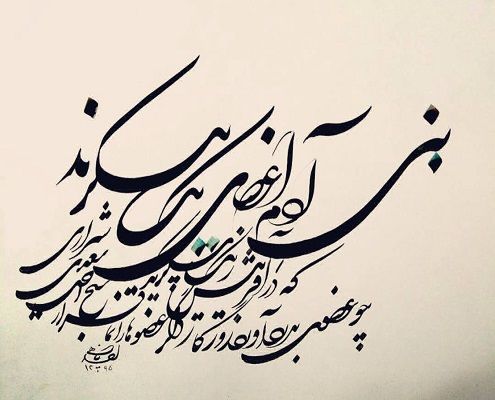 بنی آدم اعضای یکدیگرند
که در آفرینش ز یک گوهرند
چو عضوی بدرد آورد روزگار دگر عضوها را نماند قرار
شیخ اجل سعدی شیرازی
۱۲ ۳ ۹۷